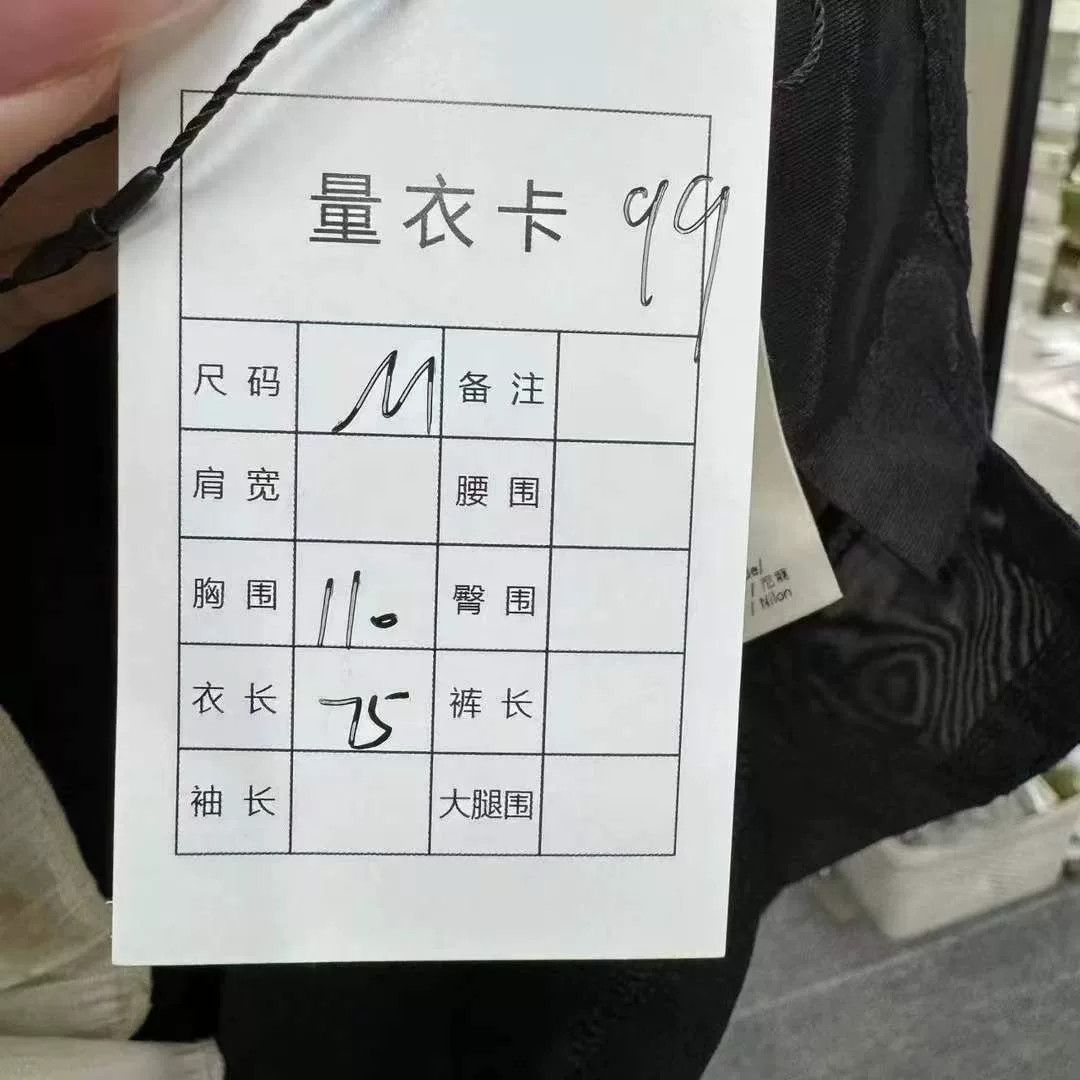 量衣卡 99
尺码 M 备注
肩宽 腰围
胸围 110 臀围
衣长 75 裤长
袖长 大腿围
/ Nilon